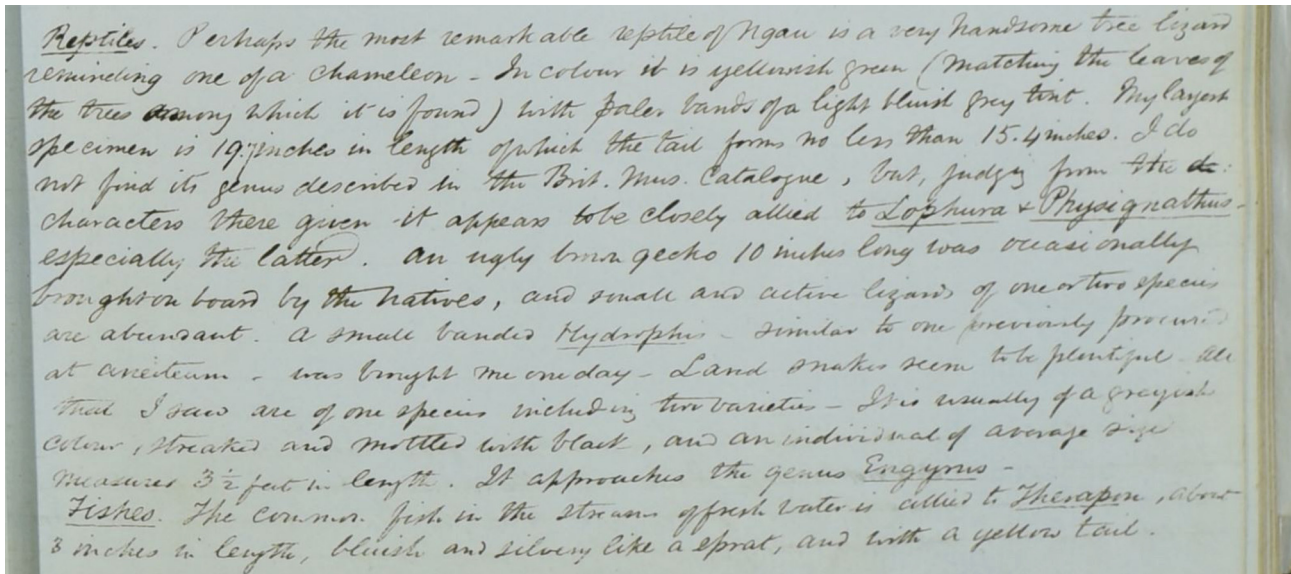 Reptiles. Perhaps the most remarkable reptile of Ngau is a very handsome tree lizard
reminding one of a chameleon - In colour it is yellowish green (matching the leaves of
the trees among which it is found) with paler bands of a light bluish grey tint. My largest
specimen is 19.7 inches in length of which the tail forms no less than 15.4 inches. I do
not find its genus described in the Brit. Mus. Catalogue, but, judging from the
characters there given it appears to be closely allied to Lophura & Physignathus -
especially the latter. An ugly brown gecko 10 inches long was occasionally
brought on board by the natives, and small and active lizards of one or two species
are abundant. A small banded Hydrophis - similar to one previously procured
at Aneiteum - was brought me one day - Land snakes seem to be plentiful - all
that I saw are of one species including two varieties - It is usually of a greyish
colour, streaked and mottled with black, and an individual of average size
measured 3 1/2 feet in length. It approaches the genus Engyrus -
Fishes. The common fish in the streams of fresh water is allied to Therapon, about
3 inches in length, bluish and silvery like a sprat, and with a yellow tail.